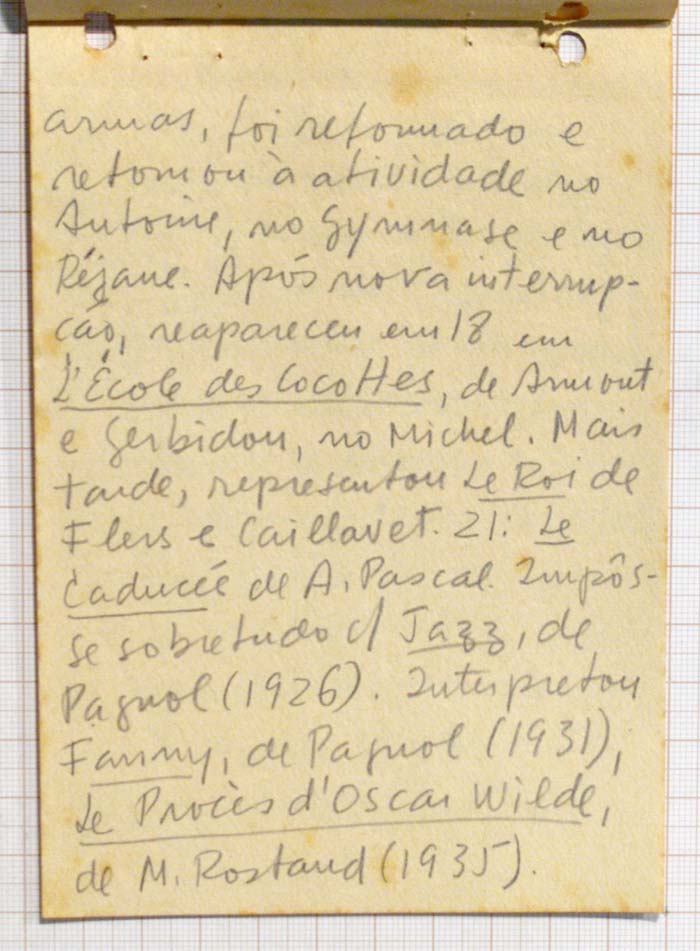 armas, foi reformado e
retomou à atividade no
Antoine, no Gymnase e no
Réjane. Após nova interrup-
ção, reapareceu em 18 em
L'École des Cocottes, de Armont
e Gerbidon, no Michel. Mais
tarde, representou Le Roi de
Flers e Caillavet. 21: Le
Caducée de A. Pascal. Impôs-
se sobretudo c/ Jazz, de
Pagnol (1926). Interpretou
Fanny, de Pagnol (1931),
Le Procès d'Oscar Wilde,
de M. Rostand (1935).